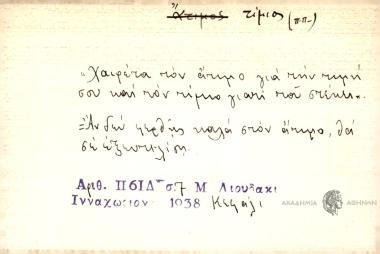 Ἄτιμος τίμιος (π.π.)
«Χαιρέτα τὸν ἄτιμο γιὰ τὴν τιμή
σου καὶ τὸν τίμιο γιατὶ τοῦ στέκει».
Ἂν δὲν φερθῇς καλὰ στὸν ἄτιμο, θὰ
σὲ ἐξευτελίσῃ.
Ἀριθ. ΙΙ6ΙΔ σ. 7 Μ Λιουδακι
Ινναχωριον 1938 Κεφάλι
ΑΚΑΔΗΜΙΑ ΑΘΗΝΩΝ